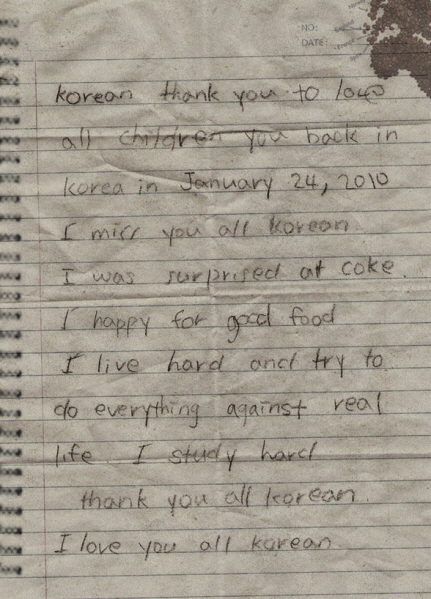 NO:
DATE:
korean thank you to love
all children you back in
korea in January 24, 2010
I miss you all korean
I was surprised at coke.
I happy for good food
I live hard and try to
do everything against real
life I study hard
thank you all korean.
I love you all korean